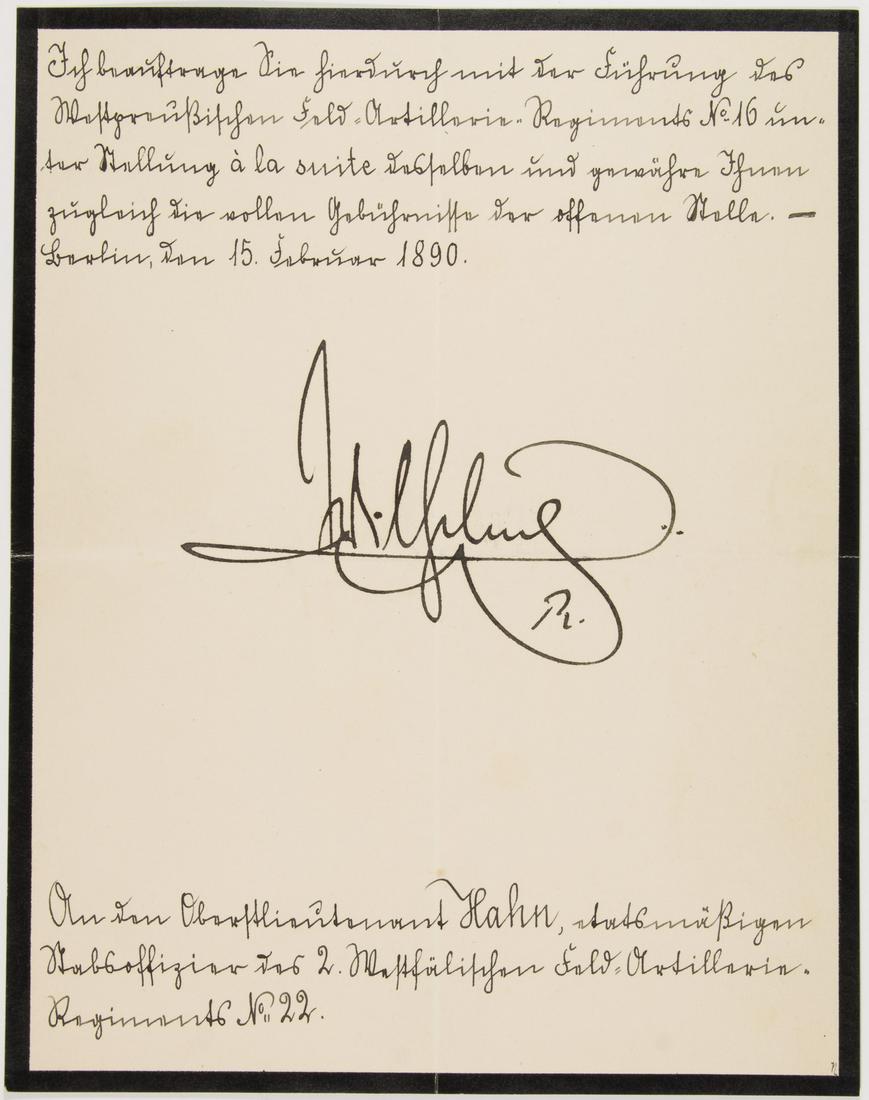 Ich beauftrage Sie hierdurch mit der Führung des
Westpreußischen Feld-Artillerie-Regiments No. 16 un-
ter Stellung à la suite desselben und gewähre Ihnen
zugleich die vollen Gebührnisse der offenen Stelle. —
Berlin, den 15. Februar 1890.
Wilhelm
R.
An den Oberstlieutenant Hahn, etatsmäßigen
Stabsoffizier des 2. Westfälischen Feld-Artillerie-
Regiments No. 22.